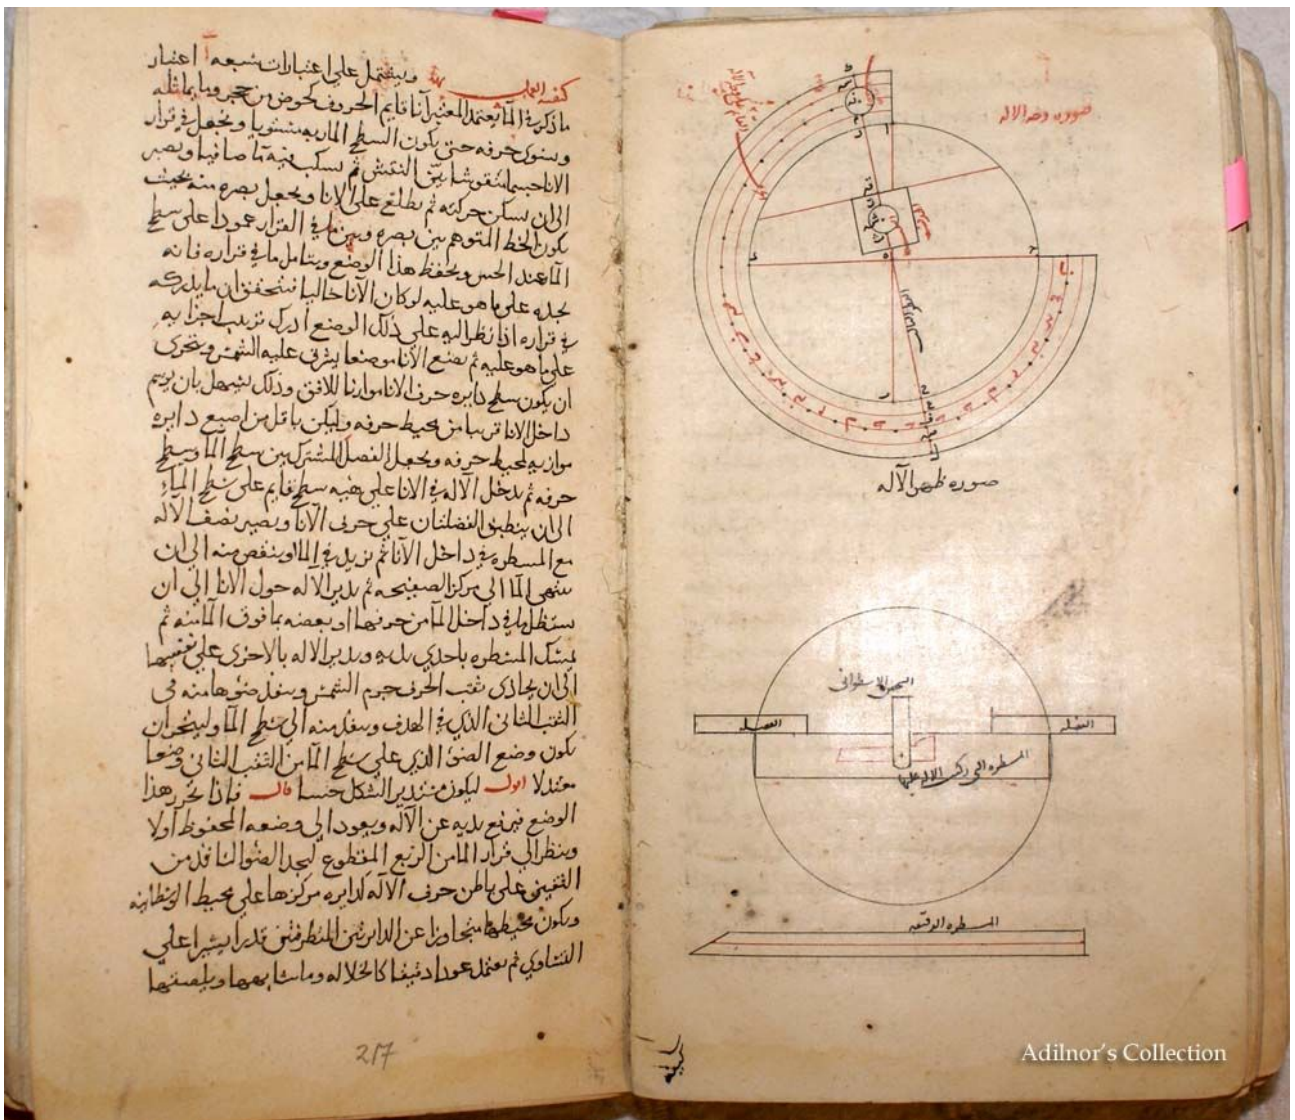 صورة وجه الآله
صوره ظهر الآله
الجسم الاسطوانى
الفضله
الفضله
المسطره التى تركب الاله عليها
المسطره الدقيقه
كيفية العمل ويشتمل على اعتبارات سبعه آ اعتبار
ما ذكر في المآ يعتمد المعتبر آنا قايم الحروف كحوض من حجر وما يماثله
ويسوى حرفه حتى يكون السطح المار به مستويا ويجعل في قرار
الانا جسما منقوشا بيّن النقش ثم يسكب فيه مآ صافيا ويصبر
الى ان تسكن حركته ثم يطلع على الانا ويجعل بصره منه بحيث
يكون الخط المتوهم بين بصره وبين ما في القرار عمودا على سطح
المآ عند الحس ويحفظ هذا الوضع ويتامل ما في قراره فانه
يجده على ما هو عليه لو كان الآنا خاليا فيتحقق ان ما يدركه
في قراره اذا نظر اليه على ذلك الوضع ادرك ترتيب اجزايه
على ما هو عليه ثم يضع الانا موضعا يشرق عليه الشمس ويتحرى
ان يكون سطح دايره حرف الانا موازيا للافق وذلك يسهل بان يرسم
داخل الانا قريبا من محيط حرفه وليكن باقل من اصبع دايره
موازيه لمحيط حرفه ويجعل الفصل المشترك بين سطح المآ وسطح
حرفه ثم يدخل الآله في الانا على هيه سطح قايم على سطح الماء
الى ان ينطبق الفضلتان على حرف الآنا ويصير نصف الآله
مع المسطره في داخل الآنا ثم يزيد في المآ او ينقص منه الى ان
ينتهى المآ الى مركز الصفيحه ثم يدير الاله حول الانا الى ان
يستظل ما في داخل المآ من حرفها او بعضه بما فوق المآ منه ثم
يمسك المسطره باحدى يديه ويدير الاله بالاخرى على
الى ان يحاذى ثقب الحرف جرم الشمس وينفذ ضوها منه فى
الثقب الثانى الذي في الهدف وينفذ منه الى سطح المآ وليتحر ان
يكون وضع الضوء الذي على سطح المآ من الثقب الثانى وضعا
معتدلا اقول ليكون مستدير الشكل حسا قال فاذا تحرر هذا
الوضع فيرفع يديه عن الآله ويعود الى وضعه المحفوظ اولا
وينظر الى قرار المآ من الربع المقطوع ليجد الضوء النافذ من
الثقبين على باطن حرف الاله كدايره مركزها على محيط الوسطانيه
ويكون محيطها متجاوزا عن الدايرتين المتطرفتين قدرا يسيرا على
التساوي ثم يعتمل عودا دقيقا كالخلاله وما شابهها ويلصقها
217
Adilnor's Collection